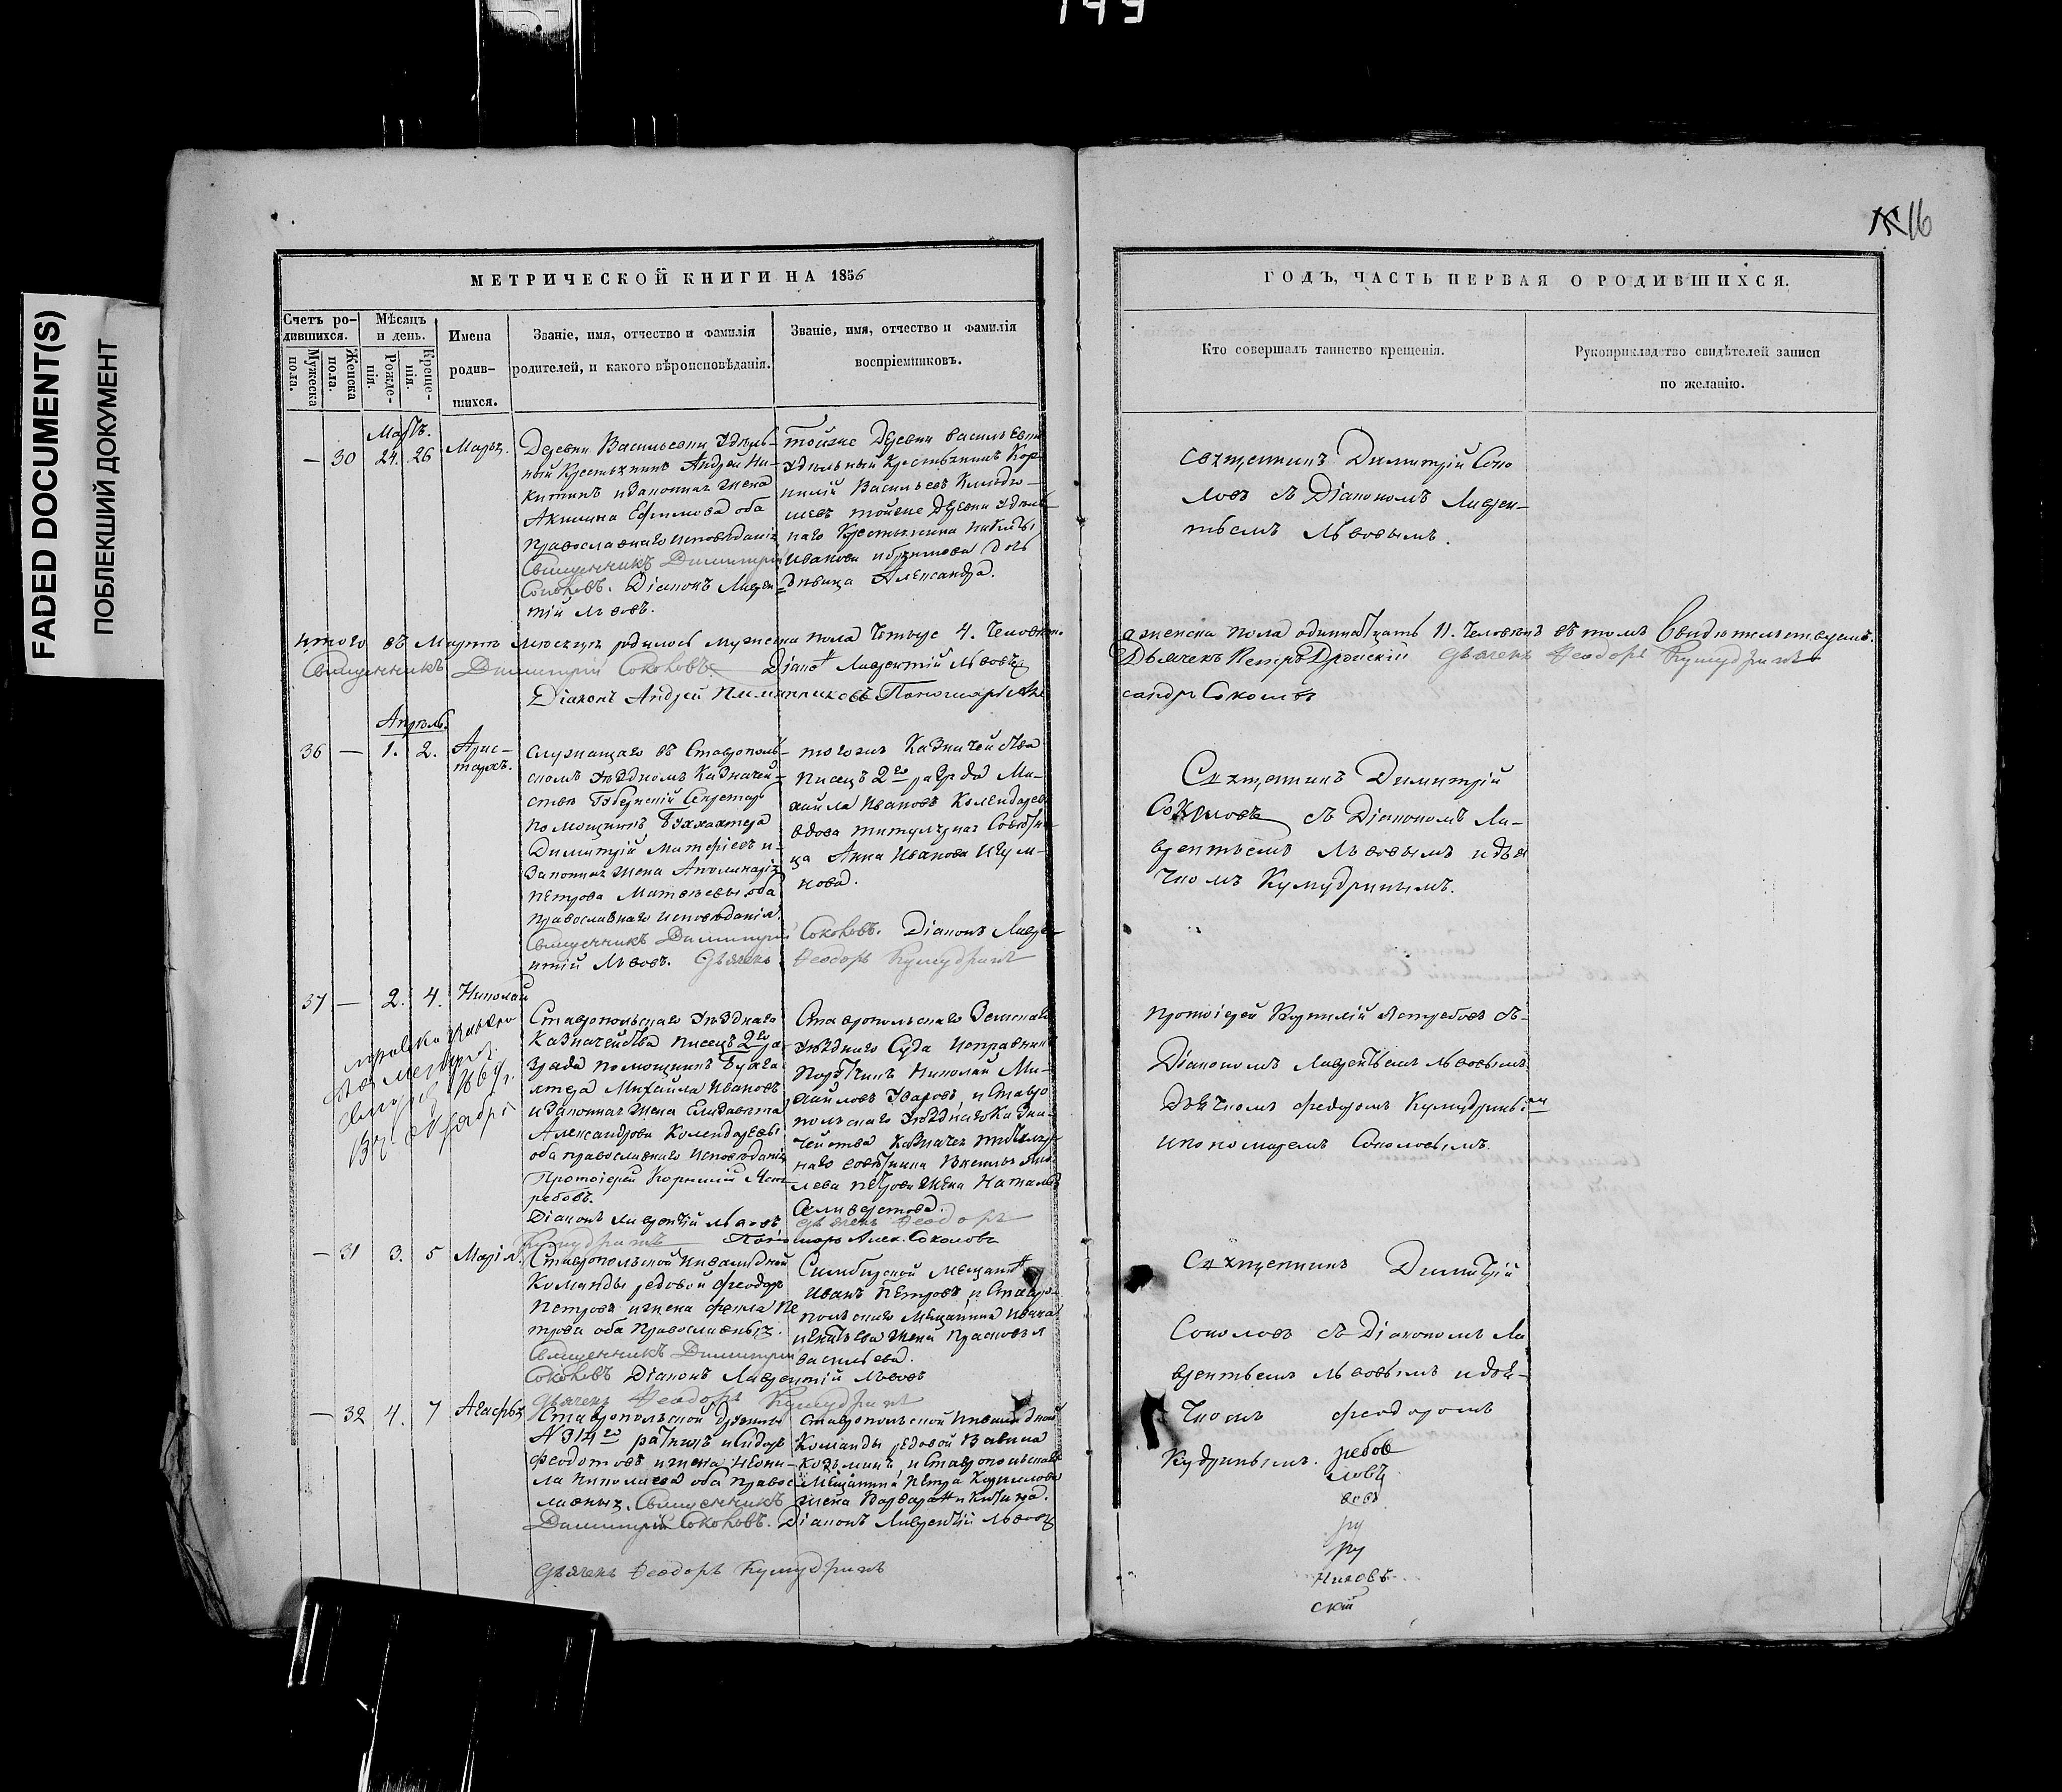 149
FADED DOCUMENT(S)
ПОБЛЕКШИЙ ДОКУМЕНТ
16
МЕТРИЧЕСКОЙ КНИГИ НА 1856
ГОДЪ, ЧАСТЬ ПЕРВАЯ О РОДИВШИХСЯ.
Счетъ ро-
дившихся.
Мужеска
пола.
Женска
пола.
Мѣсяцъ
и день.
Рожде-
нія.
Креще-
нія.
Имена
родив-
шихся.
Званіе, имя, отчество и фамилія
родителей, и какого вѣроисповѣданія.
Званіе, имя, отчество и фамилія
воспріемниковъ.
Кто совершалъ таинство крещенія.
Рукоприкладство свидѣтелей записи
по желанію.
Мартъ.
— 30 24. 26
Деревни Васильевки Удѣль-
ный Крестьянинъ Андрей Ни-
китинъ и Законная жена
Акилина Ефимова оба
Православнаго исповѣданія
Священникъ Димитрій
Соколовъ. Діаконъ Лаврен-
тій Львовъ.
тойже Деревни Василь Евки
Удѣльный Крестьянинъ Кор-
нилій Васильевъ
тойже Деревни Удѣль-
наго Крестьянина Никиты
Иванова дочь
Дѣвица Александра.
Священникъ Димитрій Соко
ловъ съ Діакономъ Лаврен-
тьемъ Львовымъ.
Итого въ Мартѣ мѣсяцѣ родилось мужеска пола 4. Человѣка
а женска пола одиннатцать 11. Человѣкъ въ томъ Свидѣтельствуемъ.
Священникъ Димитрій Соколовъ. Діаконъ Лаврентій Львовъ
Дьячекъ Петръ Дьячекъ Феодоръ Кумудринъ
Діаконъ Андрей Пономарь Але
сандръ Соколовъ
Апрѣль.
36 — 1. 2. Арис-
тархъ.
Служащаго въ Ставрополь-
скомъ Уѣздномъ Казначей-
ствѣ Губернскій Секретарь
Помощникъ Бухгалтера
Димитрій Матфіевъ и
Законная жена Аполинарія
Петрова Матвѣевы оба
Православнаго исповѣданія.
Священникъ Димитрій Соколовъ. Діаконъ Лавре-
нтій Львовъ. Дьячекъ Феодоръ Кумудринъ
тогоже Казначейства
Писецъ 2го разряда Ми-
хаила Ивановъ Колендаревъ
вдова титулярная Совѣтни-
ца Анна Иванова Игум-
нова.
Священникъ Димитрій
Соколовъ съ Діакономъ Ла-
врентьемъ Львовымъ и дья
чкомъ Кумудринымъ.
37 — 2. 4. Николай
Ставропольскаго Уѣзднаго
Казначейства писецъ 2го ра-
зряда помощникъ Бухга-
лтера Михаила Ивановъ
и Законная жена Елисавета
Александрова Колендаревы
оба православнаго исповѣданія
Протоіерей Корнилій Яст-
ребовъ.
Діаконъ Лаврентій Львовъ, Дьячекъ Феодоръ
Кумудринъ Пономарь Алек. Соколовъ
Ставропольскаго Земскаго
Уѣзднаго Суда Исправникъ
Порутчикъ Николай Ми-
хайловъ Уваровъ, и Ставро
польскаго Уѣзднаго Казна-
чейства Казначея титуляр-
наго совѣтника
Петрова жена Наталья
Селиверстова.
Протоіерей Корнилій Ястребовъ съ
Діакономъ Лаврентьемъ Львовымъ
Дьячкомъ Феодоромъ Кумудринымъ
и пономаремъ Соколовымъ.
— 31 3. 5 Марія.
Ставропольской Инвалидной
Команды рядовой Феодоръ
Петровъ и жена Фекла Пе
трова оба Православныя.
Священникъ Димитрій
Соколовъ Діаконъ Лаврентій Львовъ
Дьячекъ Феодоръ Кумудринъ
Симбирской мещанинъ
Иванъ Петровъ, и Ставро-
польскаго Мещанина Ивана
Игнатьева жена Прасковья
Васильева.
Священникъ Димитрій
Соколовъ съ Діакономъ Ла
врентьемъ Львовымъ и дья-
чкомъ Феодоромъ
Кудринымъ.
— 32 4. 7 Агафья
Ставропольской дружины
N 314го ратникъ Исидоръ
Феодотовъ и жена Неони-
ла Николаева оба Правос-
лавныя. Священникъ
Димитрій Соколовъ. Діаконъ Лаврентій Львовъ
Дьячекъ Феодоръ Кумудринъ
Ставропольской Инвалидной
Команды рядовой Вавила
Козьминъ, и Ставропольскаго
Мещанина Петра Корнилова
жена Варвара Никитина.
ребов
ловъ
вовъ
ру
ру
никовъ
скій